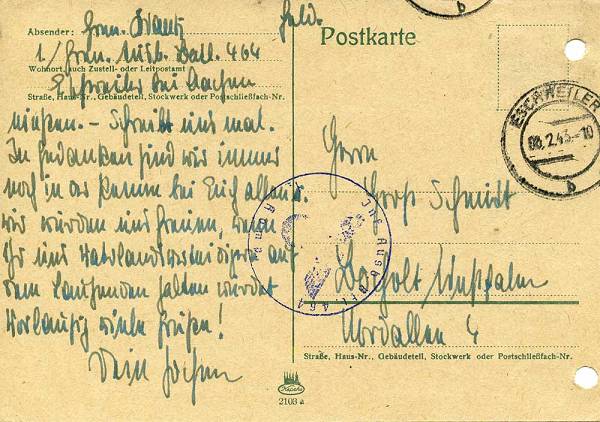 Absender: Gren.
1/Gren. Ausb. Batl. 464
Wohnort, auch Zustell- oder Leitpostamt
Eschweiler bei Aachen
Straße, Haus-Nr., Gebäudeteil, Stockwerk oder Postschließfach-Nr.
müßen. – Schreibt uns mal.
In Gedanken sind wir immer
noch in der bei Euch allen u.
wir würden uns freuen, wenn
Ihr uns Vaterlandsverteidiger auf
dem Laufenden halten würdet
Vorläufig viele Grüße!
Dein Jochen
Postkarte
b
ESCHWEILER
2.43.-10
b
Herrn
Schmidt
Bocholt Westfalen
4
Straße, Haus-Nr., Gebäudeteil, Stockwerk oder Postschließfach-Nr.
2103 a